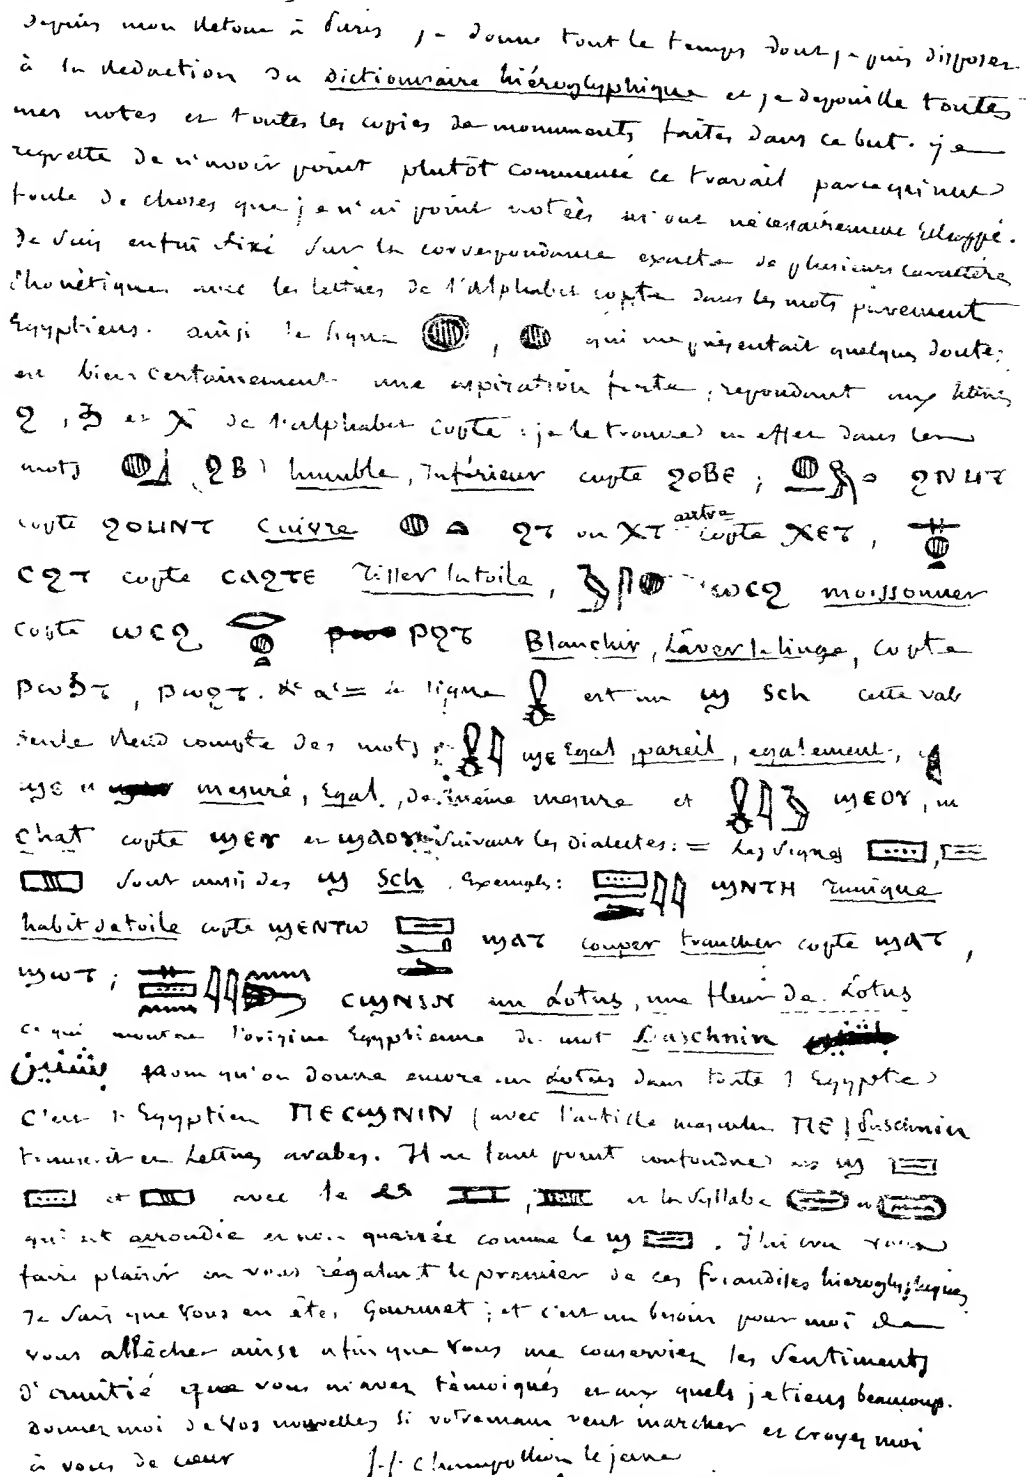 depuis mon Retour à Paris je donne tout le temps dont je puis disposer
à la Rédaction du dictionnaire hiéroglyphique et je dépouille toutes
mes notes et toutes les copies de monuments faites dans ce but. je
regrette de n'avoir point plutôt commencé ce travail parce qu'une
foule de choses que je n'ai point notées m'ont nécessairement Echappé.
Je suis enfin fixé sur la correspondance exacte de plusieurs caractère
Phonétiques avec les lettres de l'alphabet copte dans les mots purement
Egyptiens. ainsi le signe , qui me présentait quelques doute;
est bien certainement une aspiration forte, repondant aux lettres
ϩ, ϧ et ⲭ de l'alphabet copte : je le trouve en effet dans les
mots ϩⲃ humble, Inférieur copte ϩⲟⲃⲉ ; ϩⲛⲧ
copte ϩⲟⲙⲛⲧ Cuivre ϩⲧ ou ⲭⲧ autre copte ⲭⲉⲧ,
ⲥϩⲧ copte ⲥⲁϩⲧⲉ Tisser la toile, ⲱⲥϩ moissonner
copte ⲱⲥϩ ⲣϩⲧ Blanchir, Laver le linge, copte
ⲣⲱϧⲧ, ⲣⲱϩⲧ. = le signe est un ϣ Sch cette val
seule Rend compte des mots : ϣⲉ Egal, pareil, egalement,
ϣⲉ et mesuré, Egal, de même mesure et ϣⲉⲟⲩ, un
Chat copte ϣⲉⲩ et ϣⲁⲟⲩ suivant les dialectes : = Les signes ,
sont aussi des ϣ Sch. Exemples : ϣⲛⲧⲏ Tunique
habit de toile copte ϣⲉⲛⲧⲱ ϣⲁⲧ couper trancher copte ϣⲁⲧ,
ϣⲱⲧ ; ⲥϣⲛⲓⲛ un Lotus, une fleur de Lotus
ce qui montre l'origine Egyptienne du mot Baschnin
بشنين nom qu'on donne encore au Lotus dans toute l'Egypte
C'est l'Egyptien ⲡⲉⲥϣⲛⲓⲛ (avec l'article masculin ⲡⲉ) Baschnin
transcrit en Lettres arabes. Il ne faut point confondre ces ϣ
et avec le , et la syllabe et
qui est arrondie et non quarrée comme le ϣ . J'ai cru vous
faire plaisir en vous régalant le premier de ces friandises hieroglyphiques
Je sais que Vous en êtes Gourmet ; et c'est un besoin pour moi de
vous allécher ainsi afin que Vous me conserviez les Sentiments
d'amitié que vous m'avez témoignés et aux quels je tiens beaucoup.
Donnez moi de Vos nouvelles si votre main veut marcher et croyez moi
à vous de cœur J.f. Champollion le jeune